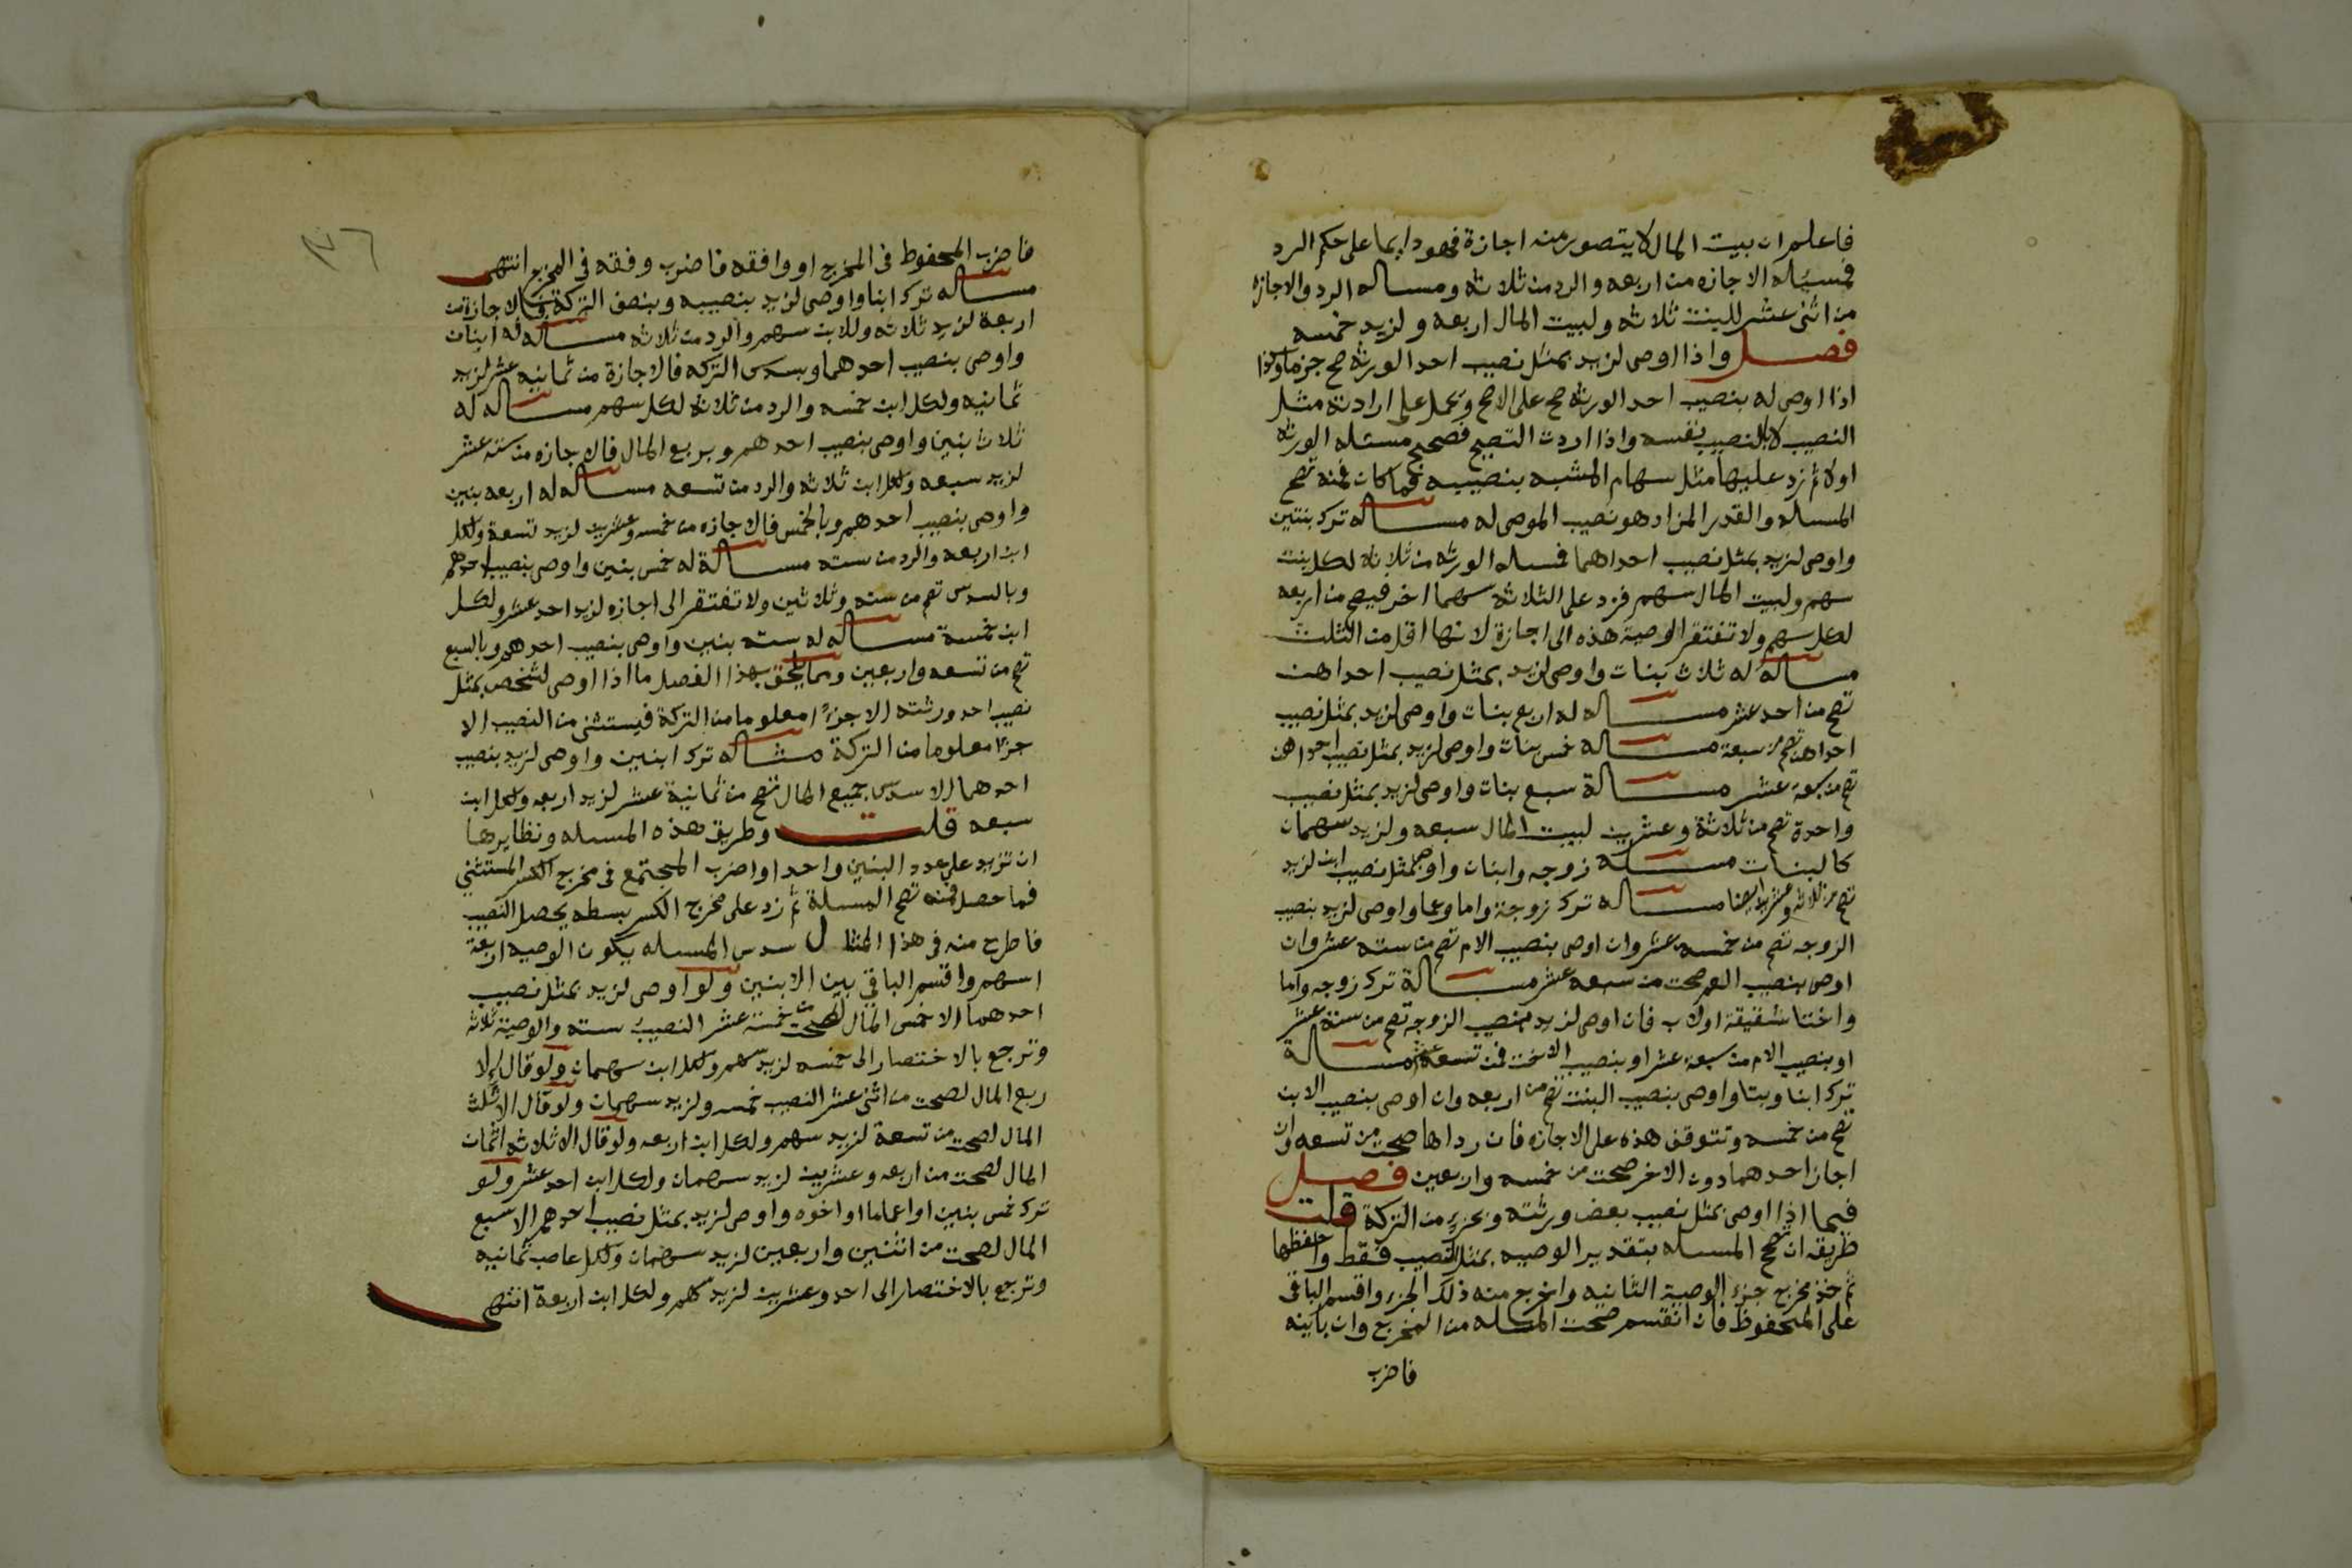 فاعلم ان بيت المال لا يتصور منه اجازة فهو دايما على حكم الرد
فمسئله الاجازه من اربعه والرد من ثلاثه ومساله الرد والاجازه
من اثنى عشر للبنت ثلاثه ولبيت المال اربعه ولزيد خمسه
فصل واذا اوصى لزيد بمثل نصيب احد الورثه صح جزما وكذا
اذا اوصى له بنصيب احد الورثه صح على الاصح ويحمل على ارادته مثل
النصيب لا بالنصيب نفسه واذا اردت التصحيح فصحح مسئله الورثه
اولا ثم زد عليها مثل سهام المشبه بنصيبه فما كان فمنه تصح
المساله والقدر المزاد هو نصيب الموصى له مساله ترك بنتين
واوصى لزيد بمثل نصيب احداهما فمسله الورثه من ثلاثه لكل بنت
سهم ولبيت المال سهم فزد على الثلاثه سهما اخر فيصح من اربعه
لكل سهم ولا تفتقر الوصية هذه الى اجازة لانها اقل من الثلث
مساله له ثلاث بنات واوصى لزيد بمثل نصيب احداهن
تصح من احد عشر مساله له اربع بنات واوصى لزيد بمثل نصيب
احداهن تصح من سبعة مساله خمس بنات واوصى لزيد بمثل نصيب احداهن
تصح من سبعة عشر مسالة سبع بنات واوصى لزيد بمثل نصيب
واحدة تصح من ثلاثة وعشرين لبيت المال سبعه ولزيد سهمان
كالبنات مسئلة زوجه وابنان واوصى بمثل نصيب ابن لزيد
تصح من ثلاثه وعشرين ايضا مساله ترك زوجة واما وعما واوصى لزيد بنصيب
الزوجه تصح من خمسه عشر وان اوصى بنصيب الام تصح من سته عشر وان
اوصى بنصيب العم صحت من سبعه عشر مسالة ترك زوجه واما
واختا شقيقة او لاب فان اوصى لزيد بنصيب الزوجه تصح من ستة عشر
او بنصيب الام من سبعة عشر او بنصيب الاخت فمن تسعة عشر مسالة
ترك ابنا وبنتا واوصى بنصيب البنت تصح من اربعه وان اوصى بنصيب الابن
تصح من خمسه وتتوقف هذه على الاجازه فان رداها صحت من تسعه وان
اجاز احدهما دون الاخر صحت من خمسه واربعين فصل
فيما اذا اوصى بمثل نصيب بعض ورثته وبجزء من التركة قلت
طريقه ان تصح المسله بتقدير الوصيه بمثل النصيب فقط واحفظها
ثم خذ مخرج جزء الوصية الثانيه واخرج منه ذلك الجزء واقسم الباقى
على المحفوظ فان انقسم صحت المسله من المخرج وان باينه
فاضرب
١٧٦
فاضرب المحفوظ فى المخرج او وافقه فاضرب وفقه فى المخرج انتهى
مساله ترك ابنا واوصى لزيد بنصيبه وبنصف التركة فالاجازة من
اربعة لزيد ثلاثه وللابن سهم والرد من ثلاثه مساله له ابنان
واوصى بنصيب احدهما وبسدس التركه فالاجازة من ثمانيه عشر لزيد
ثمانيه ولكل ابن خمسه والرد من ثلاثه لكل سهم مساله له
ثلاث بنين واوصى بنصيب احدهم وبربع المال فالاجازه من سته عشر
لزيد سبعه ولكل ابن ثلاثه والرد من تسعه مساله له اربعه بنين
واوصى بنصيب احدهم وبالخمس فالاجازه من خمسه وعشرين لزيد تسعة ولكل
ابن اربعه والرد من سته مسالة له خمس بنين واوصى بنصيب احدهم
وبالسدس تصح من سته وثلاثين ولا تفتقر الى اجازه لزيد احد عشر ولكل
ابن خمسة مساله له سته بنين واوصى بنصيب احدهم وبالسبع
تصح من تسعه واربعين ومما يلحق بهذا الفصل ما اذا اوصى لشخص بمثل
نصيب احد ورثته الا جزءا معلوما من التركة فيستثنى من النصيب الا
جزا معلوما من التركة مثاله ترك ابنين واوصى لزيد بنصيب
احدهما الا سدس جميع المال تصح من ثمانية عشر لزيد اربعه ولكل ابن
سبعه قلت وطريق هذه المسله ونظايرها
ان تزيد على عدد البنين واحدا واضرب المجتمع فى مخرج الكسر المستثنى
فما حصل فمنه تصح المسلة ثم زد على مخرج الكسر بسطه يحصل النصيب
فاطرح منه فى هذا المثال سدس المسله يكون الوصيه اربعة
اسهم واقسم الباقي بين الابنين ولو اوصى لزيد بمثل نصيب
احدهما الا خمس المال لصحت من خمسة عشر النصيب سته والوصية ثلاثه
وترجع بالاختصار الى خمسه لزيد سهم ولكل ابن سهمان ولو قال الا
ربع المال لصحت من اثنى عشر النصيب خمسه ولزيد سهمان ولو قال الا ثلث
المال لصحت من تسعة لزيد سهم ولكل ابن اربعه ولو قال الا ثلاثه اثمان
المال لصحت من اربعه وعشرين لزيد سهمان ولكل ابن احد عشر ولو
ترك خمس بنين او اعماما او اخوه واوصى لزيد بمثل نصيب احدهم الا سبع
المال لصحت من اثنين واربعين لزيد سهمان ولكل عاصب ثمانيه
وترجع بالاختصار الى احد وعشرين لزيد سهم ولكل ابن اربعة انتهى